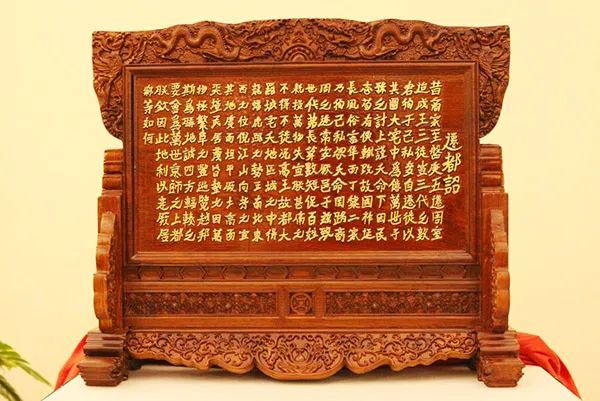 遷都詔
昔商家至盤庚五遷周室
迨成王三徙豈三代之數
君徇于己私妄自遷徙以
其圖大宅中為億萬世子
孫之計上謹天命下因民
志苟有便輒改故國祚延
長風俗富阜而丁黎二家
乃徇己私忽天命罔蹈商
周之迹常安厥邑于茲致
世代弗長算數短促百姓
耗損萬物失宜朕甚痛之
不得不徙況高王故都大
羅城宅天地區域之中得
龍蟠虎踞之勢正南北東
西之位便江山向背之宜
其地廣而坦平厥土高而
爽塏民居蔑昏墊之困萬
物極繁阜之豐遍覽越邦
斯為勝地誠四方輻輳之
要會為萬世京師之上都
朕欲因此地利以定厥居
卿等如何